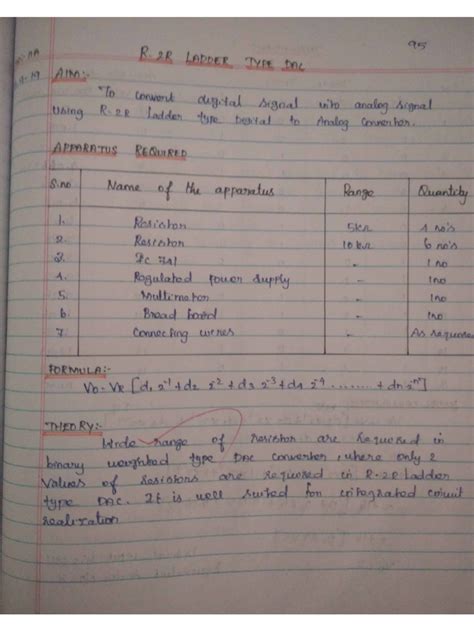 95
R-2R LADDER TYPE DAC
AIM:-
To convert digital signal into analog signal
using R-2R Ladder type Digital to Analog Converter.
APPARATUS REQUIRED
S.no Name of the apparatus Range Quantity
1. Resistor 5kΩ 4 no's
2. Resistor 10kΩ 6 no's
3. Ic 741 - 1 no
4. Regulated power supply - 1no
5. Multimeter - 1no
6. Bread board - 1no
7. Connecting wires - As required
FORMULA:-
Vo = VR [d1 2⁻¹ + d2 2⁻² + d3 2⁻³ + d4 2⁻⁴ ........ + dn 2⁻ⁿ]
THEORY:-
Wide range of resistor are required in
binary weighted type DAC converter, where only 2
values of resistors are required in R-2R Ladder
type DAC. It is well suited for integrated circuit
realization